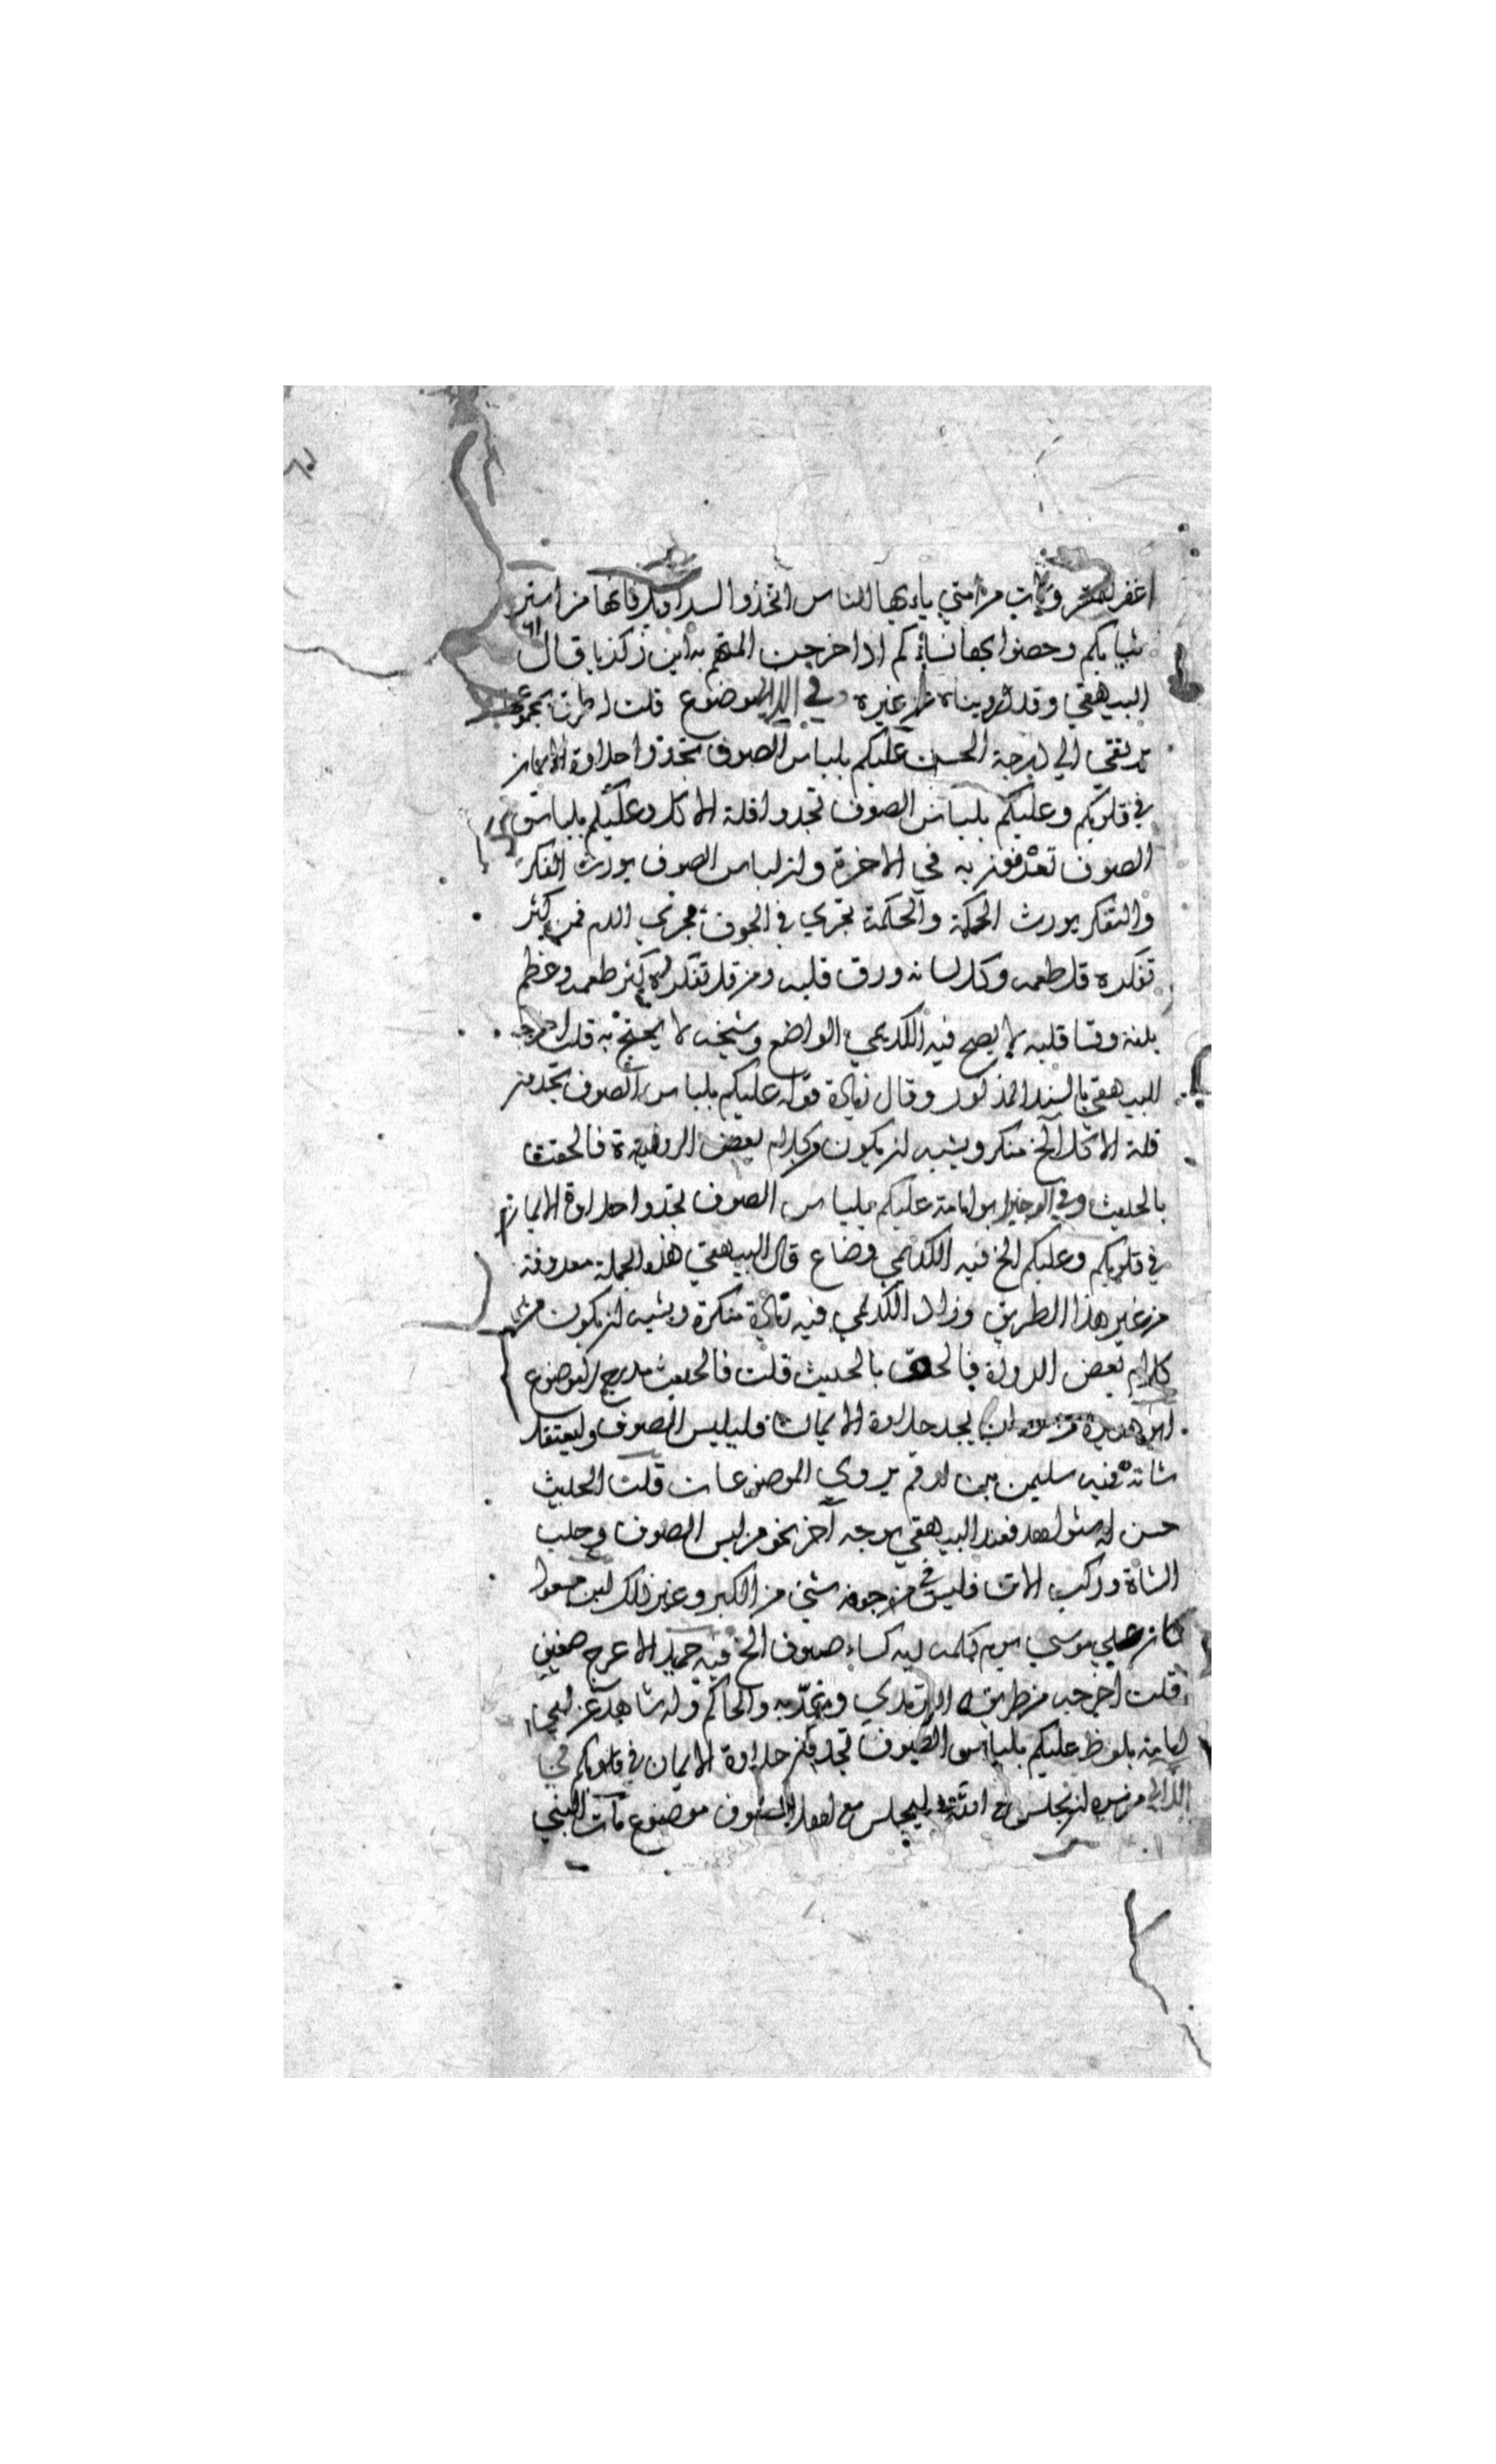 اغفر للمتسرولات من امتي يا ايها الناس اتخذوا السراويلات فانها من استر
ثيابكم وحصنوا بها نساءكم اذا خرجن المتهم به ابن زكريا قال
البيهقي وقد رويناه من غيره وفي اللالي موضوع قلت له طرق بمجموعها
ترتقي الي درجة الحسن عليكم بلباس الصوف تجدوا حلاوة الايمان
في قلوبكم وعليكم بلباس الصوف تجدوا قلة الاكل وعليكم بلباس
الصوف تعرفون به في الاخرة وان لباس الصوف يورث الفكر
والتفكر يورث الحكمة والحكمة تجري في الجوف مجري الدم فمن كثر
تفكره قل طعمه وكل لسانه ورق قلبه ومن قل تفكره كثر طعمه وعظم
بدنه وقسا قلبه لا يصح فيه الكديمي الواضع وشيخه لا يحتج به قلت اخرجه
البيهقي بالسند المذكور وقال زيادة قوله عليكم بلباس الصوف تجدون
قلة الاكل الخ منكر ويشبه ان يكون من كلام بعض الرواة فالحقت
بالحديث وفي الوجيز ابو امامة عليكم بلباس الصوف تجدوا حلاوة الايمان
في قلوبكم وعليكم الخ فيه الكديمي وضاع قال البيهقي هذه الجملة معروفة
من غير هذا الطريق وزاد الكديمي فيه زيادة منكرة ويشبه ان يكون من
كلام بعض الرواة فالحق بالحديث قلت فالحديث مدرج لا موضوع
ابو هريرة من سره ان يجد حلاوة الايمان فليلبس الصوف وليعتقل
شاته فيه سليمن بن ارقم يروي الموضوعات قلت الحديث
حسن له شواهد فعند البيهقي بوجه آخر نحو من لبس الصوف وحلب
الشاة وركب الاتن فليس في جوفه شئ من الكبر وغير ذلك ابن مسعود
كان علي موسي يوم كلمه ربه كساء صوف الخ فيه حميد الاعرج ضعيف
قلت اخرجه من طريقه الترمذي والحاكم وله شاهد عن ابي
امامة بلفظ عليكم بلباس الصوف تجدون حلاوة الايمان في قلوبكم في
اللالي من سره ان يجلس مع الله فليجلس مع اهل الصوف موضوع مات النبي